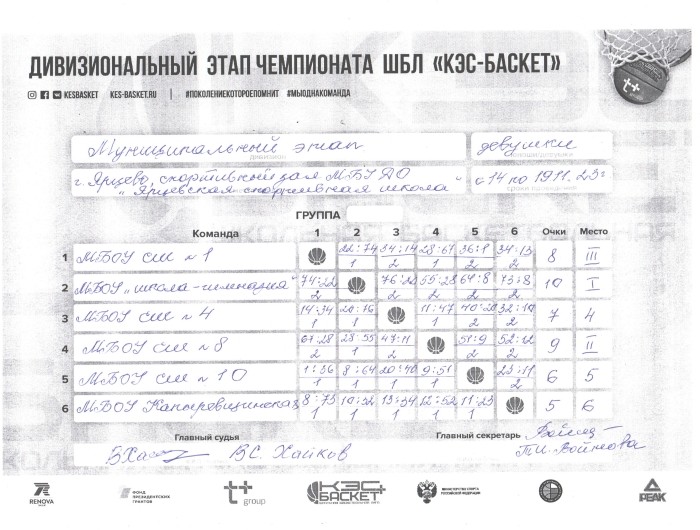 ДИВИЗИОНАЛЬНЫЙ ЭТАП ЧЕМПИОНАТА ШБЛ «КЭС-БАСКЕТ»
KESBASKET KES-BASKET.RU #ПОКОЛЕНИЕКОТОРОЕПОМНИТ #МЫОДНАКОМАНДА
Муниципальный этап девушки
г. Ярцево, спортивный зал МБУ ДО с 14 по 19 11. 23 г
"Ярцевская спортивная школа"
ГРУППА
Команда 1 2 3 4 5 6 Очки Место
1 МБОУ СШ №1 22:74 34:14 28:61 36:1 34:13 8 III
1 2 1 2 2
2 МБОУ "школа-гимназия" 74:22 76:20 55:28 64:8 73:8 10 I
2 2 2 2 2
3 МБОУ СШ №4 14:34 20:76 11:47 40:20 7 4
1 1 1 2 2
4 МБОУ СШ №8 61:28 28:55 47:11 51:9 52:12 9 II
2 1 2 2 2
5 МБОУ СШ №10 1:36 8:64 20:40 9:51 23:11 6 5
1 1 1 1 2
6 МБОУ Капыревщинская 8:73 12:52 11:23 5 6
1 1 1 1 1
Главный судья Главный секретарь
В.С. Хайков Т.И. Войнова
RENOVA ФОНД ПРЕЗИДЕНТСКИХ ГРАНТОВ т+ group КЭС БАСКЕТ МИНИСТЕРСТВО СПОРТА РОССИЙСКОЙ ФЕДЕРАЦИИ PEAK